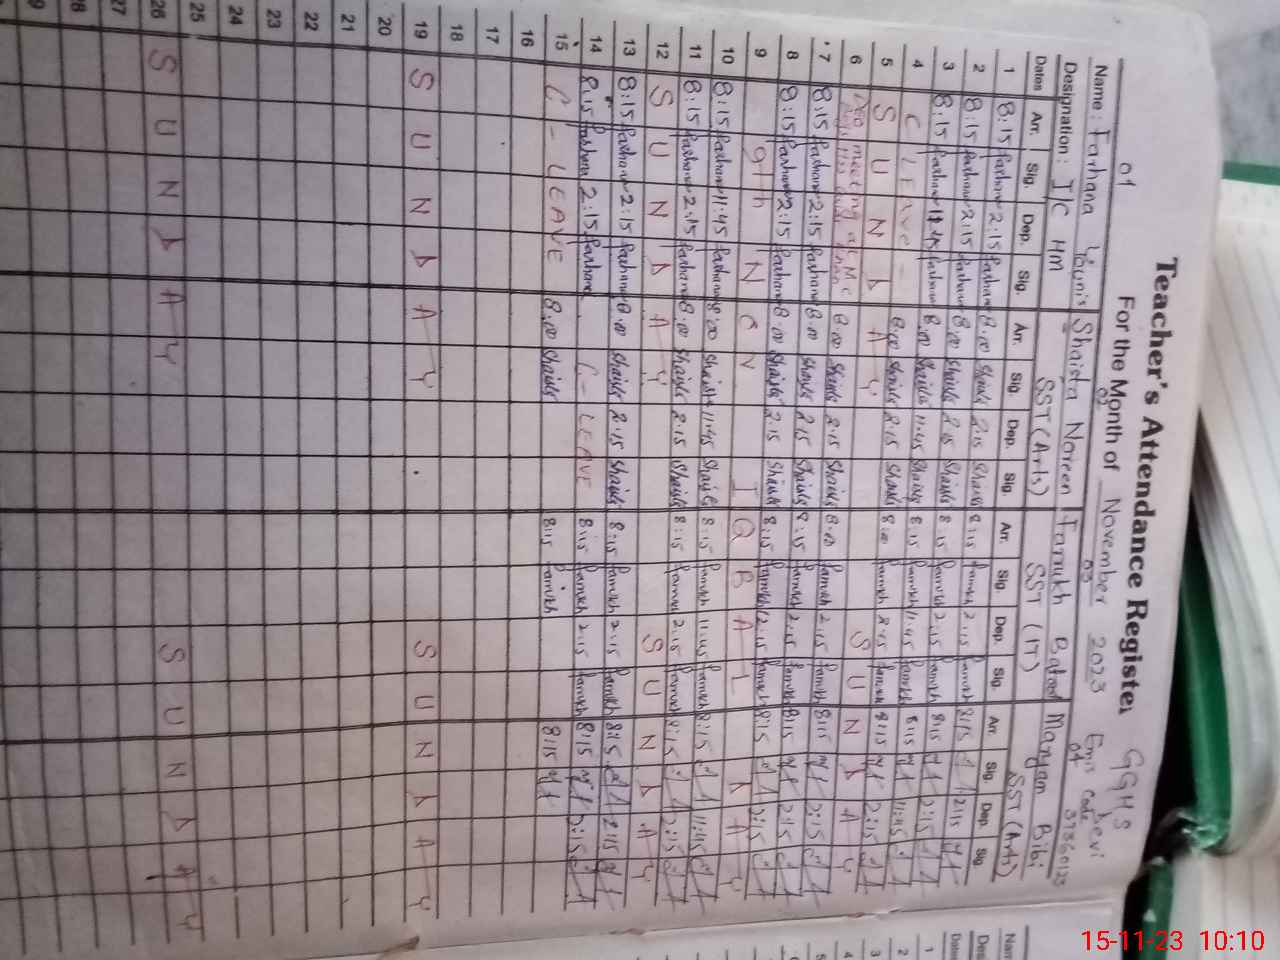 Teacher's Attendance Register GGHS
For the Month of November 2023 Emis Code 37360123
01 02 03 04
Name: Farhana Younis Shaista Noreen Farrukh Batool Maryam Bibi
Designation: I/C HM SST (Arts) SST (IT) SST (Arts)
Dates Arr. Sig. Dep. Sig. Arr. Sig. Dep. Sig. Arr. Sig. Dep. Sig. Arr. Sig. Dep. Sig.
1 8:15 Farhana 2:15 Farhana 8:00 Shaista 2:15 Shaista 8:15 Farrukh 2:15 Farrukh 8:15 2:15
2 8:15 Farhana 2:15 Farhana 8:00 Shaista 2:15 Shaista 8:15 Farrukh 2:15 Farrukh 8:15 2:15
3 8:15 Farhana 11:45 Farhana 8:00 Shaista 11:45 Shaista 8:15 Farrukh 11:45 Farrukh 8:15 11:45
4 C LEAVE 8:00 Shaista 2:15 Shaista 8:00 Farrukh 8:15 2:15
5 S U N D A Y S U N D A Y
6 meeting 8:00 Shaista 2:15 Shaista 8:00 Farrukh 2:15 Farrukh 8:15 2:15
7 8:15 Farhana 2:15 Farhana 8:00 Shaista 2:15 Shaista 8:15 Farrukh 2:15 Farrukh 8:15 2:15
8 8:15 Farhana 2:15 Farhana 8:00 Shaista 2:15 Shaista 8:15 Farrukh 12:15 Farrukh 8:15 2:15
9 9th N O V I Q B A L D A Y
10 8:15 Farhana 11:45 Farhana 8:00 Shaista 11:45 Shaista 8:15 Farrukh 11:45 Farrukh 8:15 11:45
11 8:15 Farhana 2:15 Farhana 8:00 Shaista 2:15 Shaista 8:15 Farrukh 2:15 Farrukh 8:15 2:15
12 S U N D A Y S U N D A Y
13 8:15 Farhana 2:15 Farhana 8:00 Shaista 2:15 Shaista 8:15 Farrukh 2:15 Farrukh 8:15 2:15
14 8:15 Farhana 2:15 Farhana C - LEAVE 8:15 Farrukh 2:15 Farrukh 8:15 2:15
15 C - LEAVE 8:00 Shaista 8:15 Farrukh 8:15
16
17
18
19 S U N D A Y S U N D A Y
20
21
22
23
24
25
26 S U N D A Y S U N D A Y
27
28
Dates
1
2
3
4
15-11-23 10:10